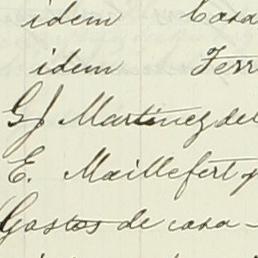 idem Casa
idem Ferr
G J Martinez del
E. Maillefert y
Gastos de casa -